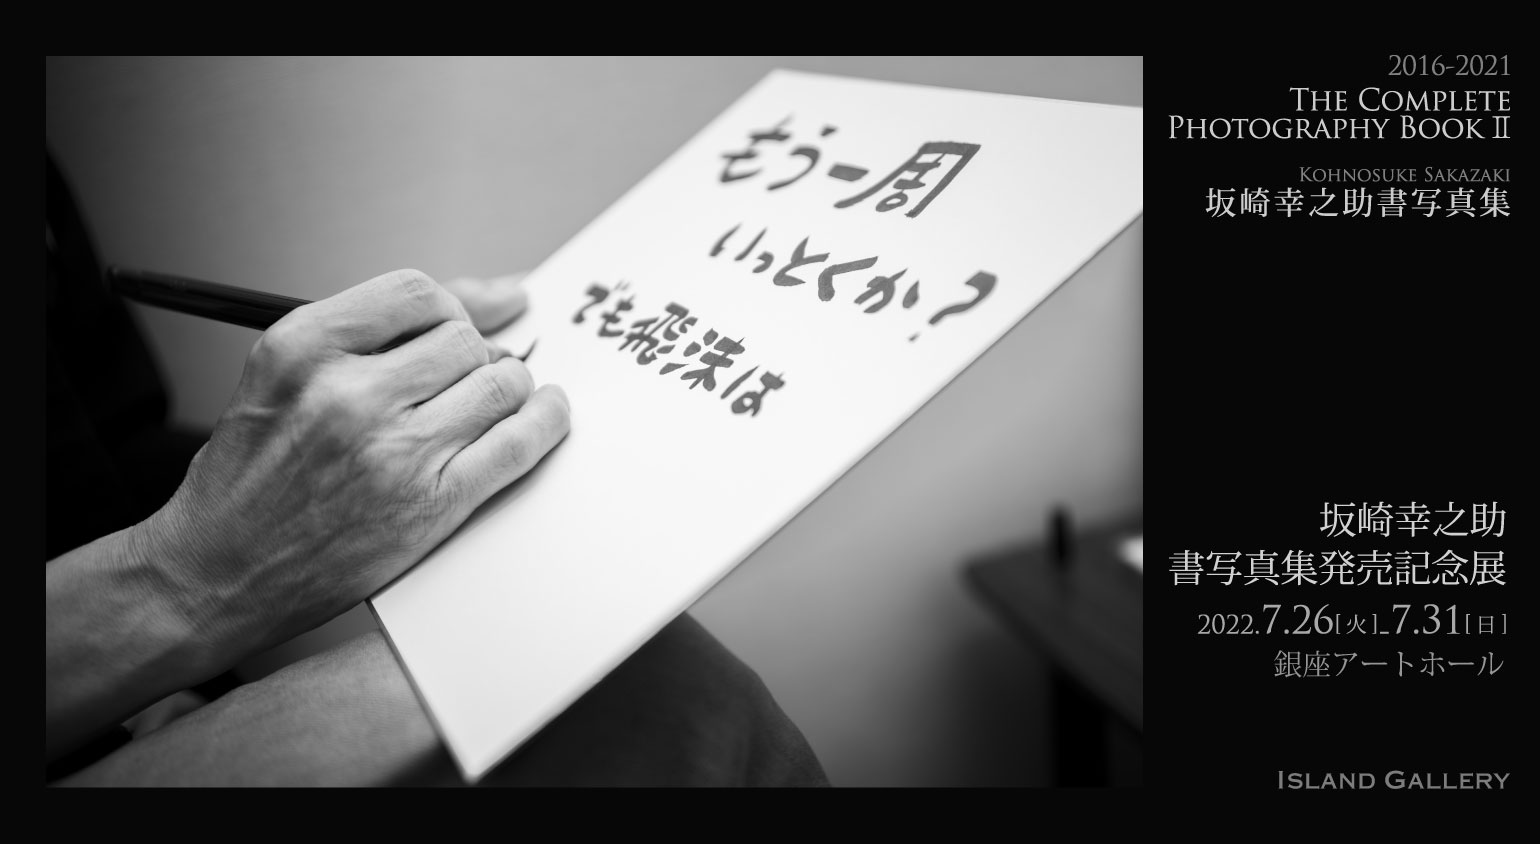 もう一周
いっとくか?
でも飛沫は
2016-2021
THE COMPLETE
PHOTOGRAPHY BOOK II
KOHNOSUKE SAKAZAKI
坂崎幸之助書写真集
坂崎幸之助
書写真集発売記念展
2022.7.26[火]_7.31[日]
銀座アートホール
ISLAND GALLERY